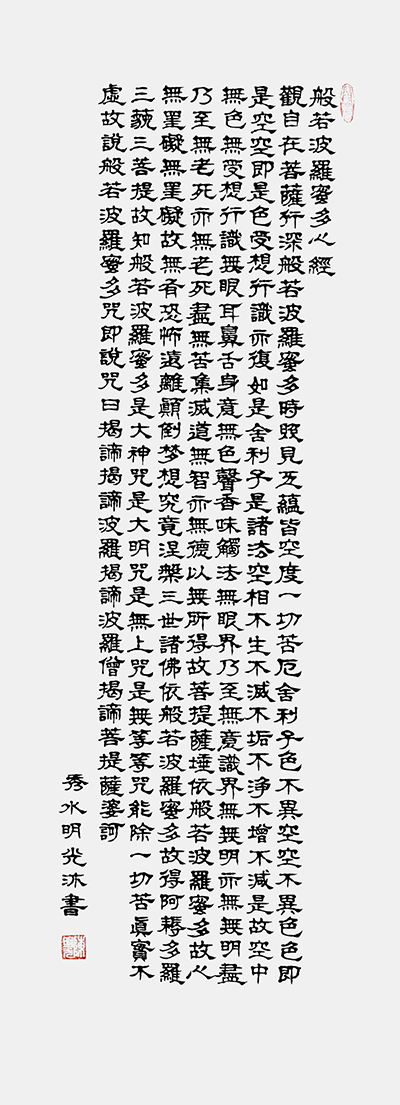 般若波羅蜜多心經
觀自在菩薩行深般若波羅蜜多時照見五蘊皆空度一切苦厄舍利子色不異空空不異色色即
是空空即是色受想行識亦復如是舍利子是諸法空相不生不滅不垢不淨不增不減是故空中
無色無受想行識無眼耳鼻舌身意無色聲香味觸法無眼界乃至無意識界無無明亦無無明盡
乃至無老死亦無老死盡無苦集滅道無智亦無德以無所得故菩提薩埵依般若波羅蜜多故心
無罣礙無罣礙故無有恐怖遠離顛倒梦想究竟涅槃三世諸佛依般若波羅蜜多故得阿耨多羅
三藐三菩提故知般若波羅蜜多是大神咒是大明咒是無上咒是無等等咒能除一切苦眞實不
虛故說般若波羅蜜多咒即說咒曰揭諦揭諦波羅揭諦波羅僧揭諦菩提薩婆訶
秀水明光沐書